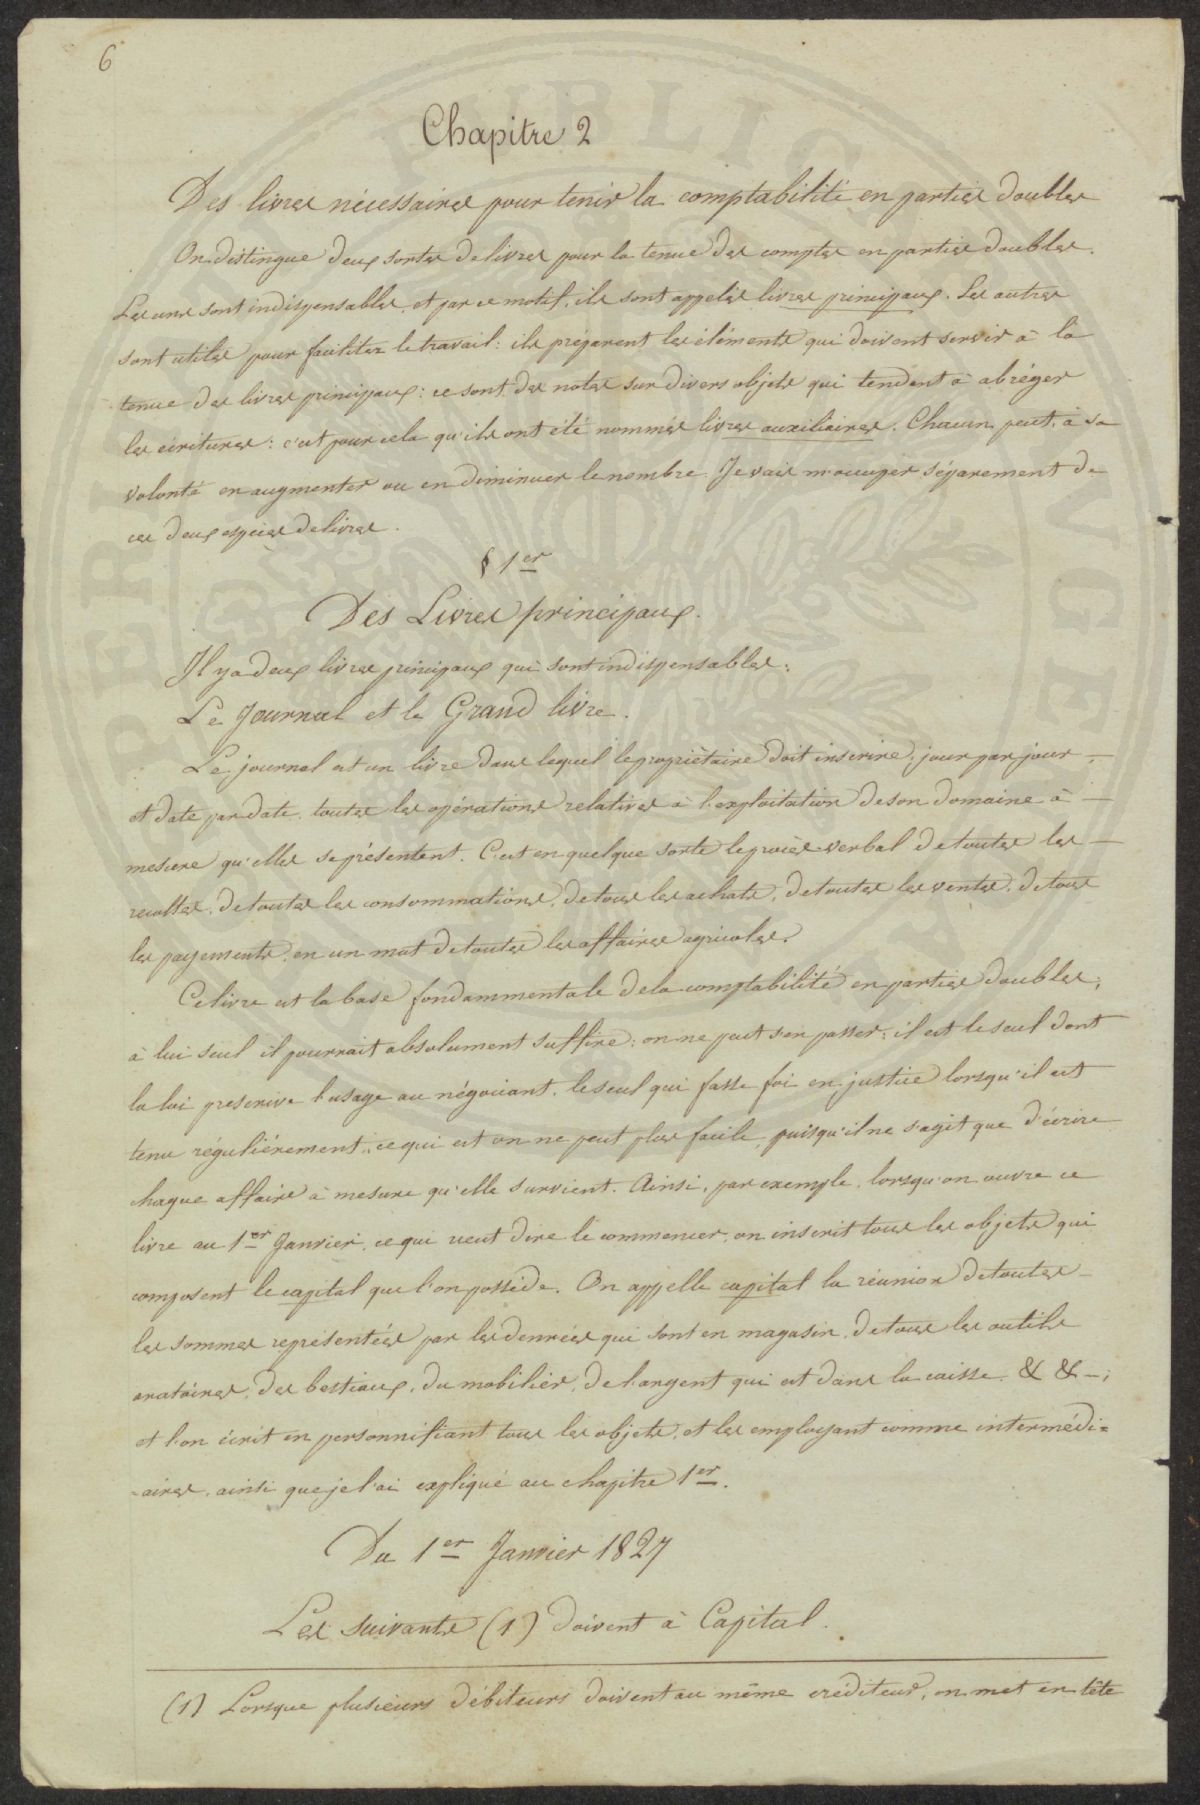 6
Chapitre 2
Des livres nécessaires pour tenir la comptabilité en parties doubles
On distingue deux sortes de livres pour la tenue des comptes en parties doubles.
Les uns sont indispensables, et par ce motif, ils sont appelés livres principaux. Les autres
sont utiles pour faciliter le travail : ils préparent les éléments qui doivent servir à la
tenue des livres principaux : ce sont des notes sur divers objets qui tendent à abréger
les écritures : c'est pour cela qu'ils ont été nommés livres auxiliaires. Chacun peut, à sa
volonté en augmenter ou en diminuer le nombre. Je vais m'occuper séparement de
ces deux espèces de livres.
§ 1er
Des Livres principaux.
Il y a deux livres principaux qui sont indispensables :
Le Journal et le Grand livre.
Le journal est un livre dans lequel le propriétaire doit inscrire, jour par jour,
et date par date, toutes les opérations relatives à l'exploitation de son domaine à
mesure qu'elles se présentent. C'est en quelque sorte le procès-verbal de toutes les
recoltes, de toutes les consommations, de tous les achats, de toutes les ventes, de tous
les payements, en un mot de toutes les affaires agricoles.
Ce livre est la base fondammentale de la comptabilité en parties doubles,
à lui seul il pourrait absolument suffire : on ne peut s'en passer ; il est le seul dont
la loi prescrive l'usage au négociant, le seul qui fasse foi en justice lorsqu'il est
tenu réguliérement, ce qui est on ne peut plus facile, puisqu'il ne s'agit que d'écrire
chaque affaire à mesure qu'elle survient. Ainsi, par exemple, lorsqu'on ouvre ce
livre au 1er Janvier, ce qui veut dire le commencer, on inscrit tous les objets qui
composent le capital que l'on possède. On appelle capital la réunion de toutes
les sommes représentées par les denrées qui sont en magasin, de tous les outils
aratoires, des bestiaux, du mobilier, de l'argent qui est dans la caisse. & & - ;
et l'on écrit en personnifiant tous les objets, et les employant comme intermédi=
-aires, ainsi que je l'ai expliqué au chapitre 1er.
Du 1er Janvier 1827
Les suivants (1) doivent à Capital.
(1) Lorsque plusieurs débiteurs doivent au même créditeur, on met en tête